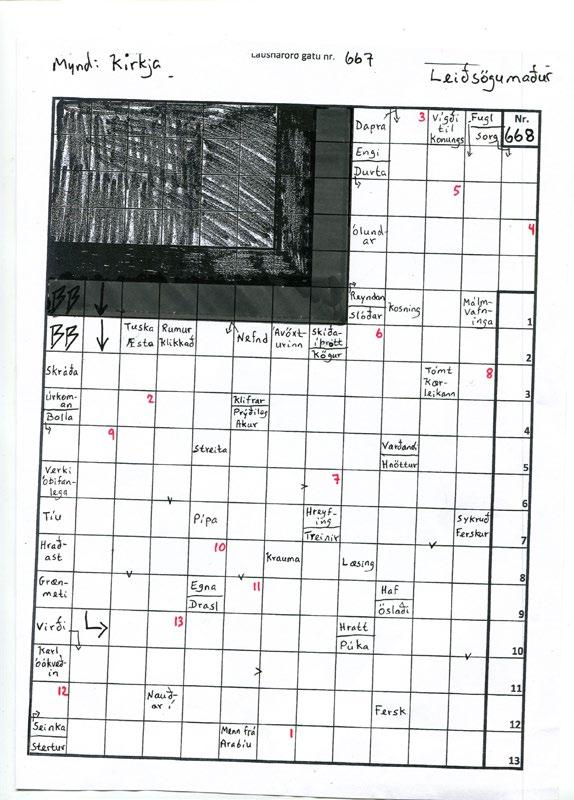 Mynd: Kirkja
Lausnarorð gátu nr. 667
Leiðsögumaður
Dapra
3
Vígði til konungs
Fugl
Sorg
Nr. 668
Engi
Durta
5
Ólundar
4
Reyndan
Slóðar
Kosning
Málmvafninga
1
BB
BB
Tuska
Æsta
Rumur
Klikkað
Nefnd
Ávöxturinn
Skíðaíþrótt
Kögur
6
2
Skráða
Tómt
Kærleikann
8
3
Úrkoman
Bolla
2
Klifrar
Prýðileg
Akur
4
9
Streita
Varðandi
Hnöttur
5
Verki óbifanlega
7
6
Tíu
Pípa
Hreyfing
Treinir
Sykruð
Ferskur
7
Hraðast
10
Krauma
Læsing
8
Grænmeti
Egna
Drasl
11
Haf
Öslaði
9
Virði
13
Hratt
Púka
10
Karl bókveðin
11
12
Nauðar í
Fersk
12
Seinka
Stertur
Menn frá Arabíu
1
13